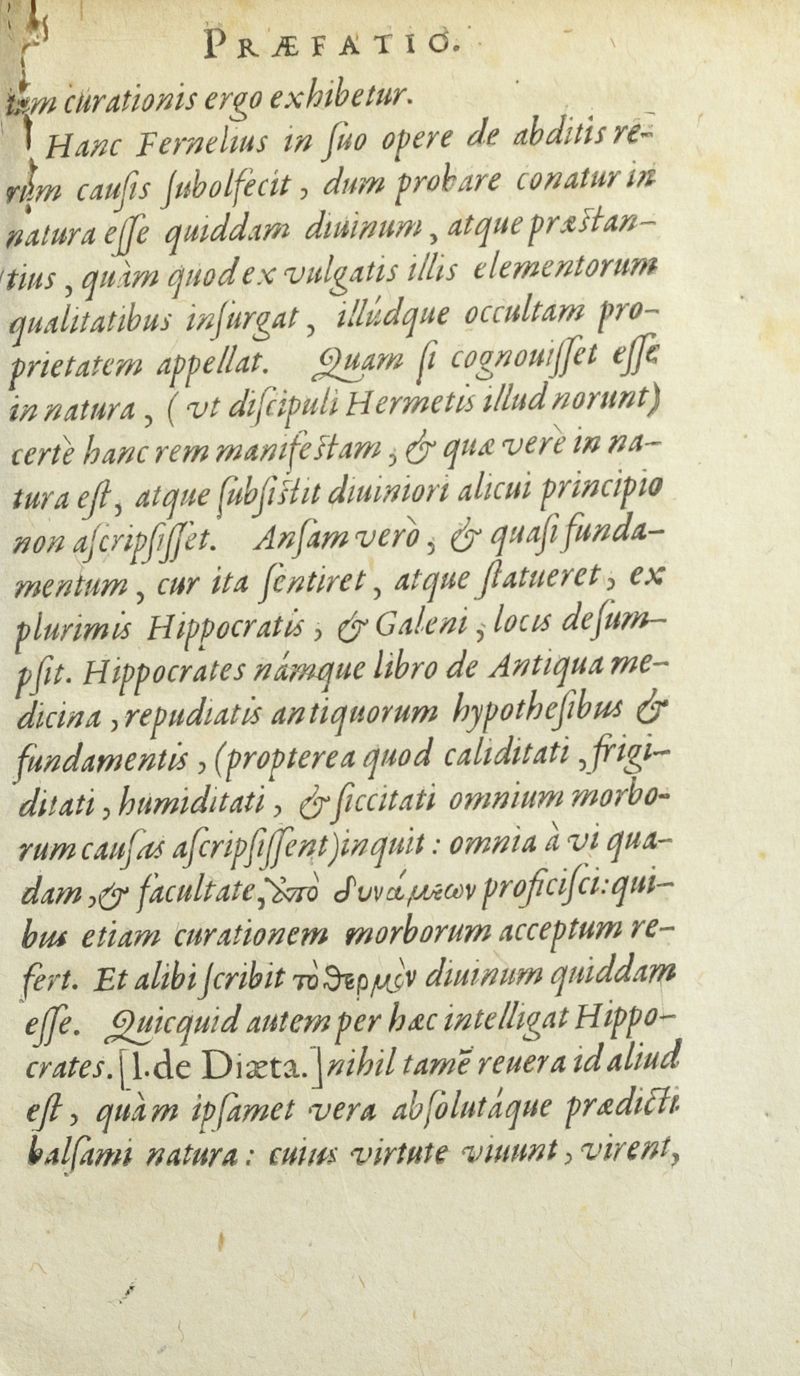 PRÆFATIO.
tum curationis ergo exhibetur.
Hanc Fernelius in ſuo opere de abditis re-
rum cauſis ſubolfecit, dum probare conatur in
natura eſſe quiddam diuinum, atque præstan-
tius, quàm quod ex vulgatis illis elementorum
qualitatibus inſurgat, illúdque occultam pro-
prietatem appellat. Quam ſi cognouiſſet eſſe
in natura, (vt diſcipuli Hermetis illud norunt)
certè hanc rem manifestam, & quæ verè in na-
tura eſt, atque ſubſistit diuiniori alicui principio
non aſcripſiſſet. Anſam verò, & quaſi funda-
mentum, cur ita ſentiret, atque ſtatueret, ex
plurimis Hippocratis, & Galeni, locis deſum-
pſit. Hippocrates námque libro de Antiqua me-
dicina, repudiatis antiquorum hypotheſibus &
fundamentis, (propterea quod caliditati, frigi-
ditati, humiditati, & ſiccitati omnium morbo-
rum cauſas aſcripſiſſent) inquit: omnia à vi qua-
dam, & facultate, ὑπὸ δυνάμεων proficiſci: qui-
bus etiam curationem morborum acceptum re-
fert. Et alibi ſcribit τὸ θερμὸν diuinum quiddam
eſſe. Quicquid autem per hæc intelligat Hippo-
crates. [l. de Diæta.] nihil tamē reuera id aliud
eſt, quàm ipſamet vera abſolutáque prædicti
balſami natura: cuius virtute viuunt, virent,